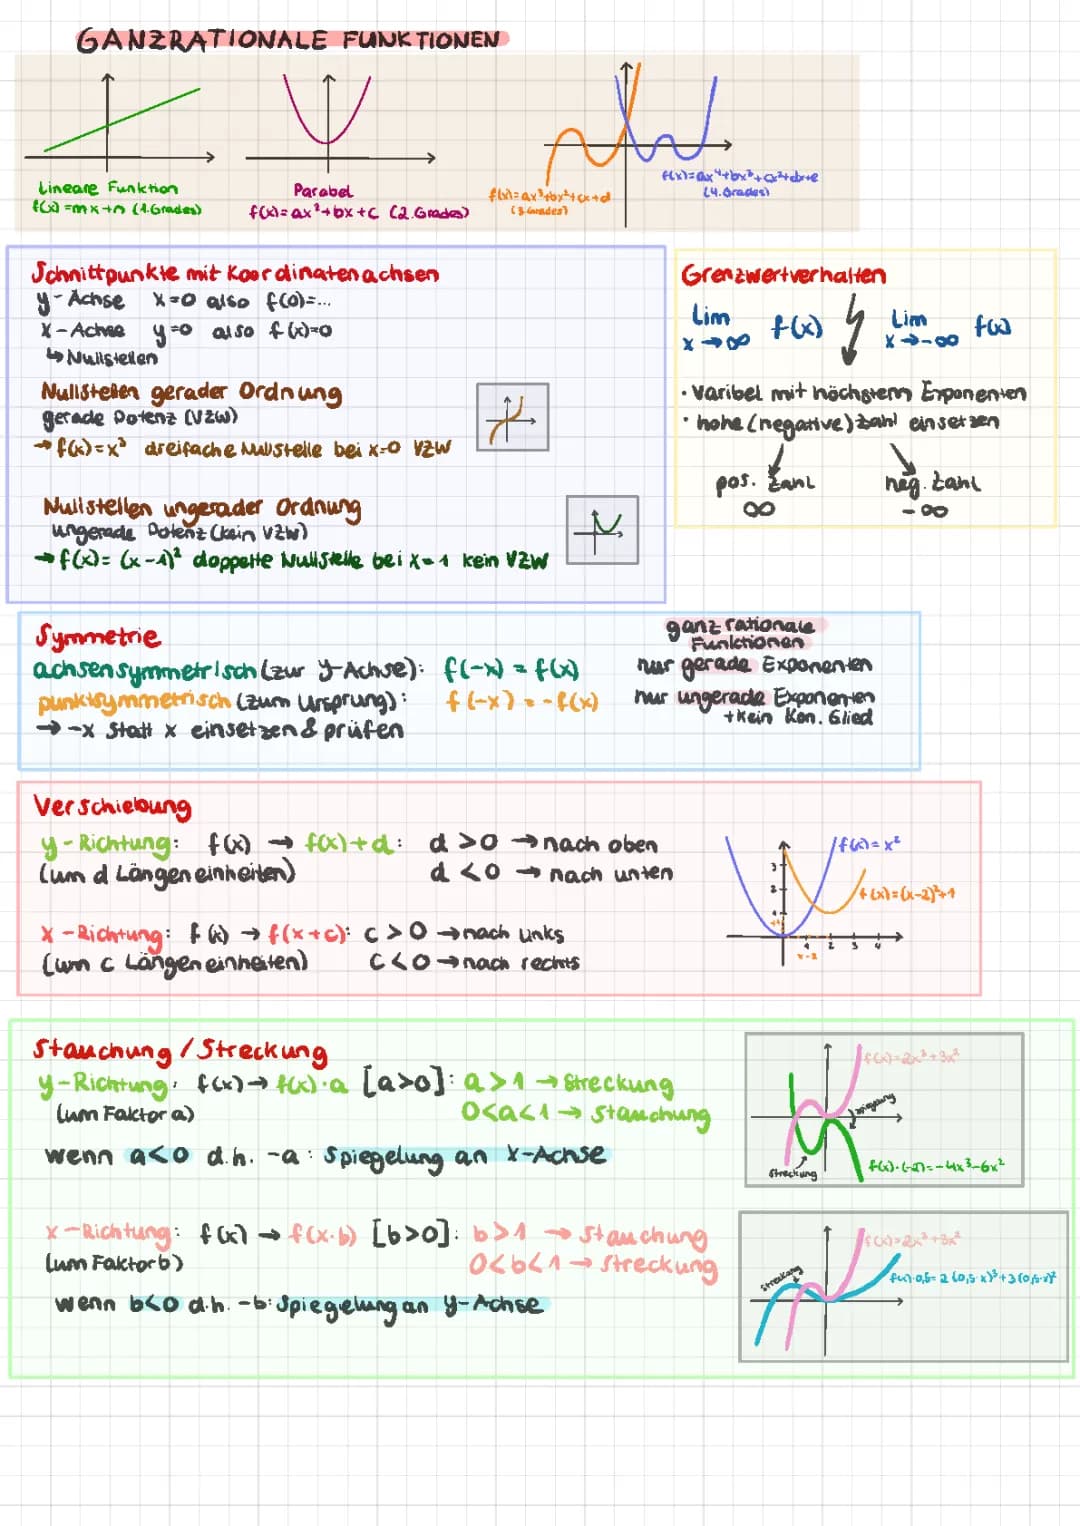 GANZRATIONALE FUNKTIONEN
Lineare Funktion
f(x)=mx+n (1.Grades)
Parabel
f(x)=ax²+bx+c (2.Grades)
f(x)=ax³+bx²+cx+d
(3.Grades)
f(x)=ax⁴+bx³+cx²+dx+e
(4.Grades)
Schnittpunkte mit Koordinatenachsen
y-Achse x=0 also f(0)=...
x-Achse y=0 also f(x)=0
↳ Nullstellen
Nullstellen gerader Ordnung
gerade Potenz (VZW)
→ f(x)=x³ dreifache Nullstelle bei x=0 VZW
Nullstellen ungerader Ordnung
ungerade Potenz (kein VZW)
→ f(x)=(x-1)² doppelte Nullstelle bei x=1 kein VZW
Grenzwertverhalten
Lim f(x) Lim f(x)
x→∞ x→-∞
· Varibel mit höchstem Exponenten
· hohe (negative) Zahl einsetzen
pos. Zahl neg. Zahl
∞ -∞
Symmetrie
ganzrationale
Funktionen
achsensymmetrisch (zur y-Achse): f(-x) = f(x) nur gerade Exponenten
punktsymmetrisch (zum Ursprung): f(-x) = -f(x) nur ungerade Exponenten
+kein Kon. Glied
→ -x statt x einsetzen & prüfen
Verschiebung
y-Richtung: f(x) → f(x)+d: d>0 → nach oben
(um d Längeneinheiten) d<0 → nach unten
x-Richtung: f(x) → f(x+c): c>0 → nach links
(um c Längeneinheiten) c<0 → nach rechts
f(x)=x²
f(x)=(x-2)²+1
3
2
1
1 2 3 4
Stauchung / Streckung
y-Richtung: f(x) → f(x)·a [a>0]: a>1 → Streckung
(um Faktor a) 0<a<1 → Stauchung
wenn a<0 d.h. -a: Spiegelung an x-Achse
f(x)=2x³+3x²
Spiegelung
Streckung
f(x)·(-2)=-4x³-6x²
x-Richtung: f(x) → f(x·b) [b>0]: b>1 → Stauchung
(um Faktor b) 0<b<1 → Streckung
wenn b<0 d.h. -b: Spiegelung an y-Achse
f(x)=2x³+3x²
Streckung
f(x)·0,5=2(0,5·x)³+3(0,5·x)²